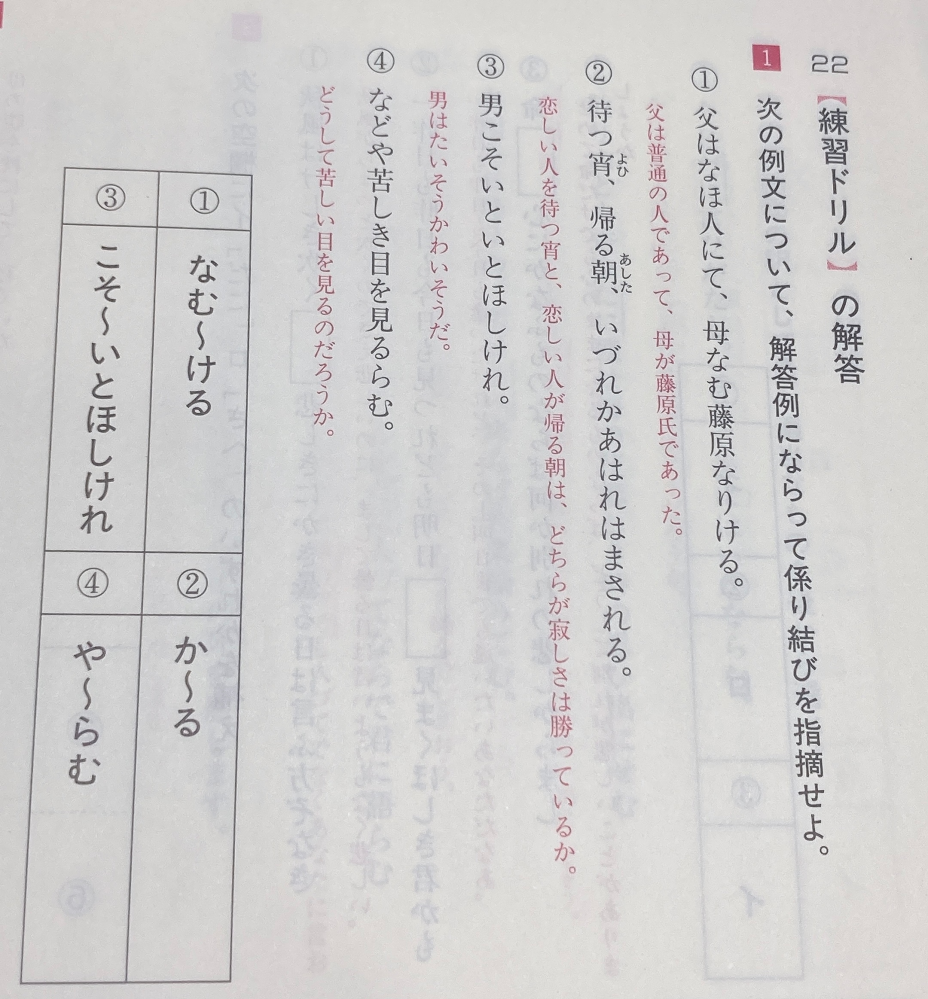 22 【練習ドリル】の解答
1 次の例文について、解答例にならって係り結びを指摘せよ。
① 父はなほ人にて、母なむ藤原なりける。
父は普通の人であって、母が藤原氏であった。
② 待つ宵、帰る朝、いづれかあはれはまされる。
よひ
あした
恋しい人を待つ宵と、恋しい人が帰る朝は、どちらが寂しさは勝っているか。
③ 男こそいといとほしけれ。
男はたいそうかわいそうだ。
④ などや苦しき目を見るらむ。
どうして苦しい目を見るのだろうか。
① なむ〜ける
② か〜る
③ こそ〜いとほしけれ
④ や〜らむ